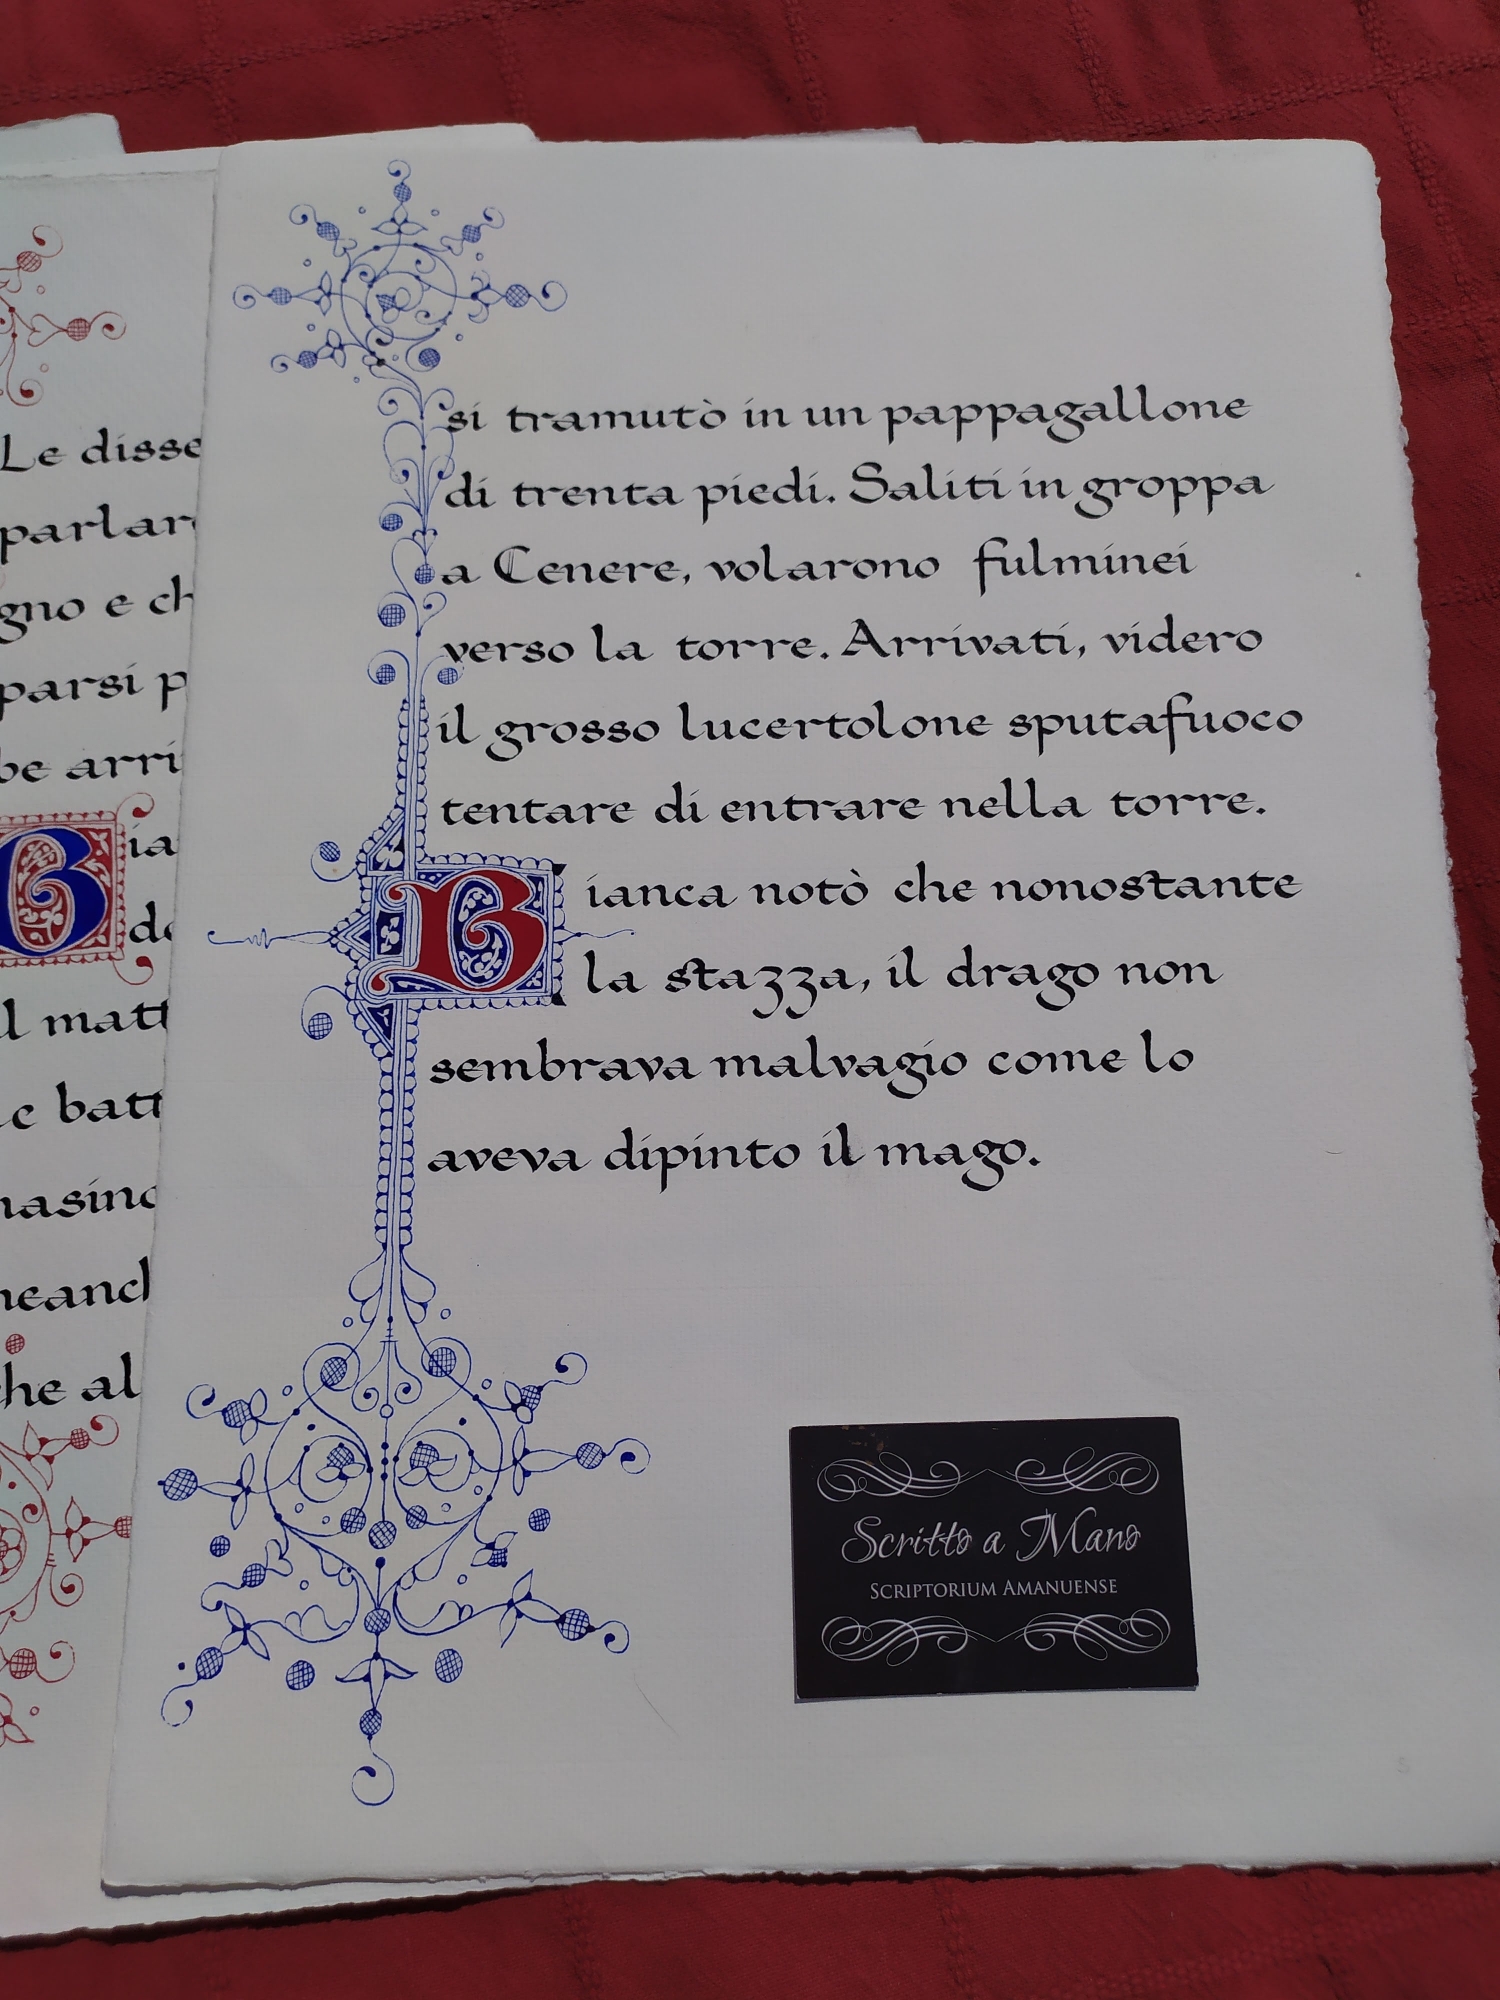 Le disse
parlar
gno e ch
parsi p
be arri
Bia
do
l matt
e batt
nasino
neanch
he al
si tramutò in un pappagallone
di trenta piedi. Saliti in groppa
a Cenere, volarono fulminei
verso la torre. Arrivati, videro
il grosso lucertolone sputafuoco
tentare di entrare nella torre.
Bianca notò che nonostante
la stazza, il drago non
sembrava malvagio come lo
aveva dipinto il mago.
Scritto a Mano
SCRIPTORIUM AMANUENSE